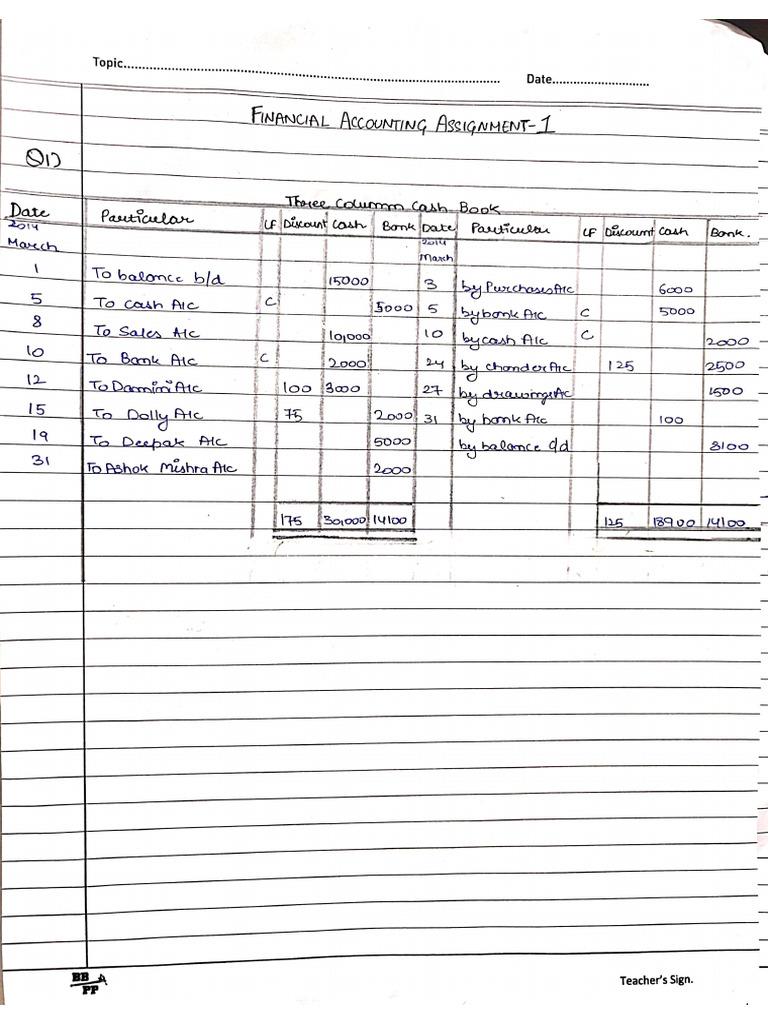 Topic.......... Date..........
FINANCIAL ACCOUNTING ASSIGNMENT-1
Q1)
Three Column Cash Book
Date Particular LF Discount Cash Bank Date Particular LF Discount Cash Bank.
2014 March 2014 March
1 To balance b/d 15000 3 by Purchases A/c 6000
5 To Cash A/c C 5000 5 by bank A/c C 5000
8 To Sales A/c 10,000 10 by cash A/c C 2000
10 To Bank A/c C 2000 24 by chander A/c 125 2500
12 To Damini A/c 100 3000 27 by drawings A/c 1500
15 To Dolly A/c 75 2000 31 by bank A/c 100
19 To Deepak A/c 5000 by balance c/d 8100
31 To Ashok Mishra A/c 2000
175 30,000 14100 125 18900 14100
BB
PP
Teacher's Sign.